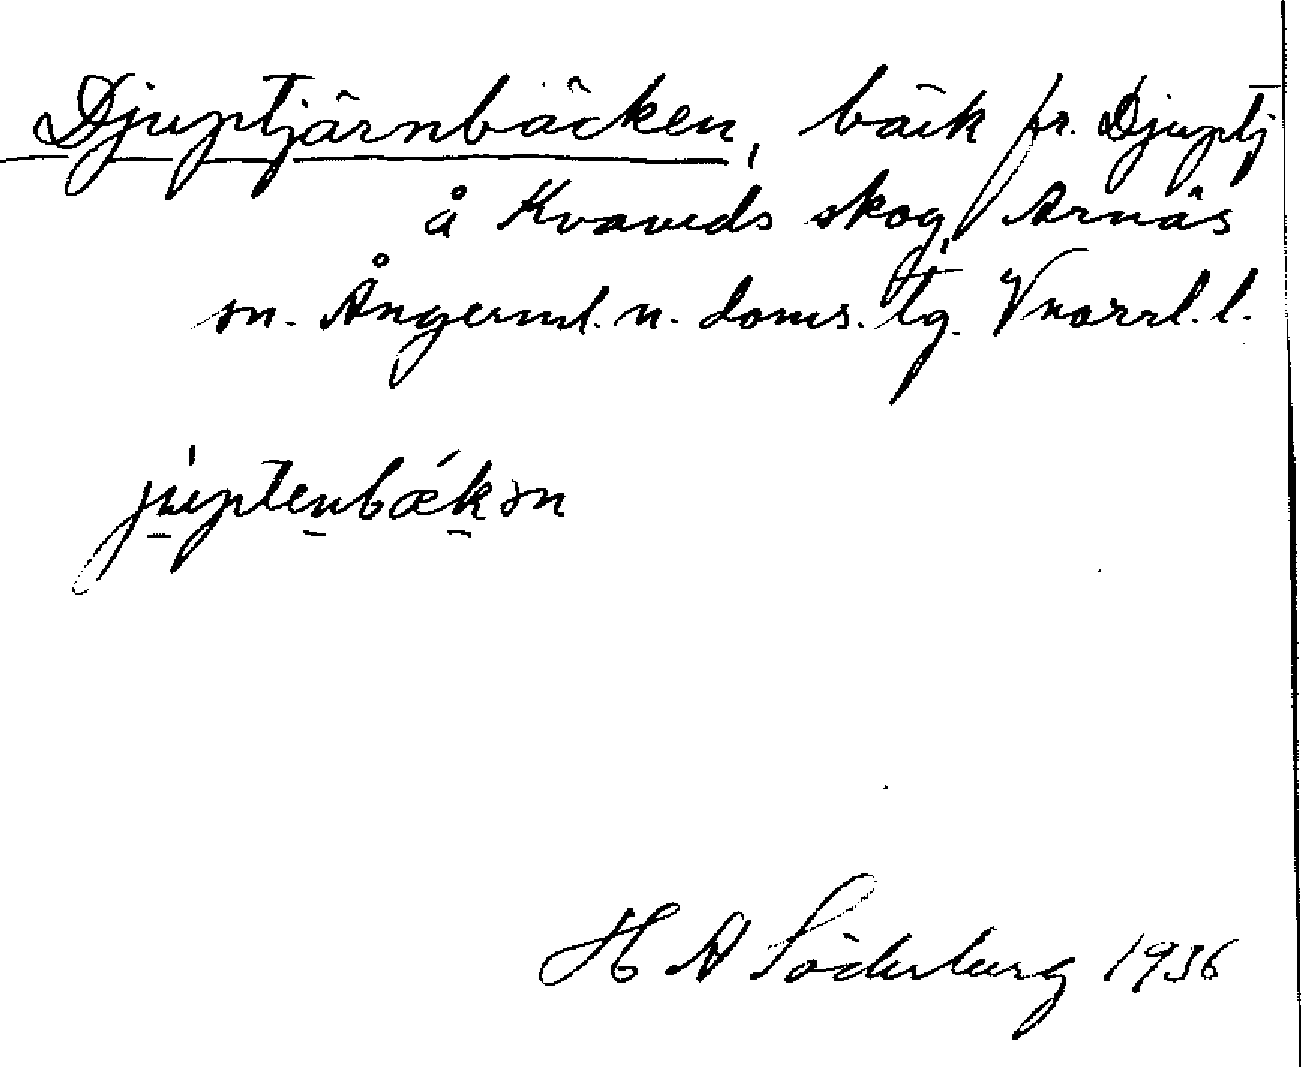 Djuptjärnbäcken, bäck fr. Djuptj
å Kvaveds skog, Arnäs
sn. Ångerml. n. doms. tg. Vnorrl. l.
juptenbækən
H A Söderberg 1936